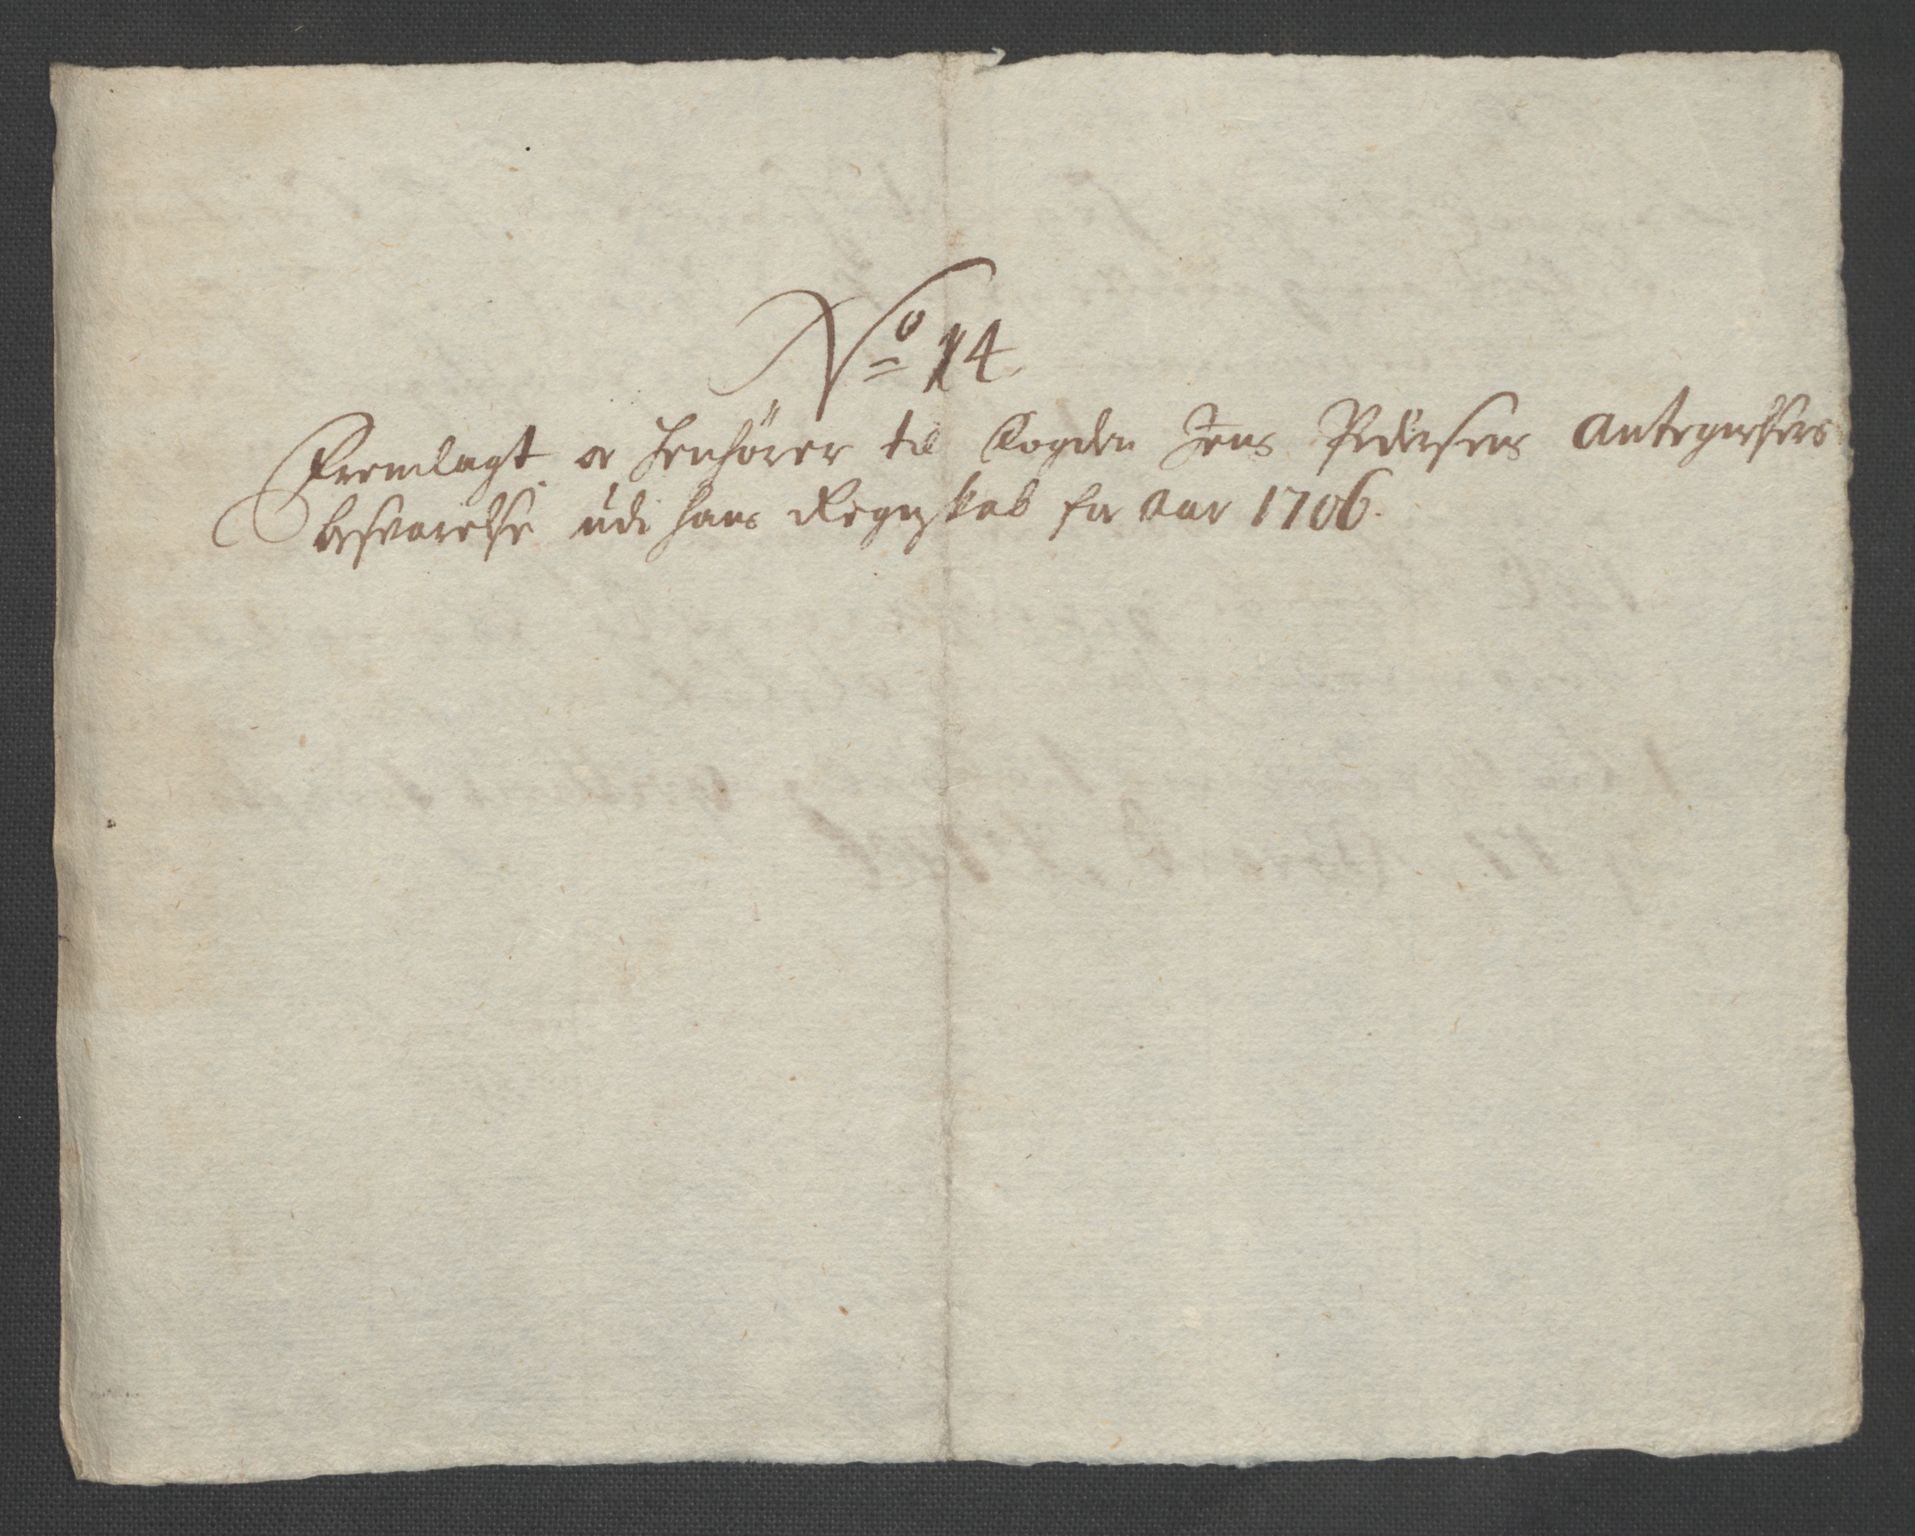 No 14
Fremlagt oc henhörer til Fogden Jens Pedersens Antegnelsers
besvarelse udi hans Regnskab for aar 1706.